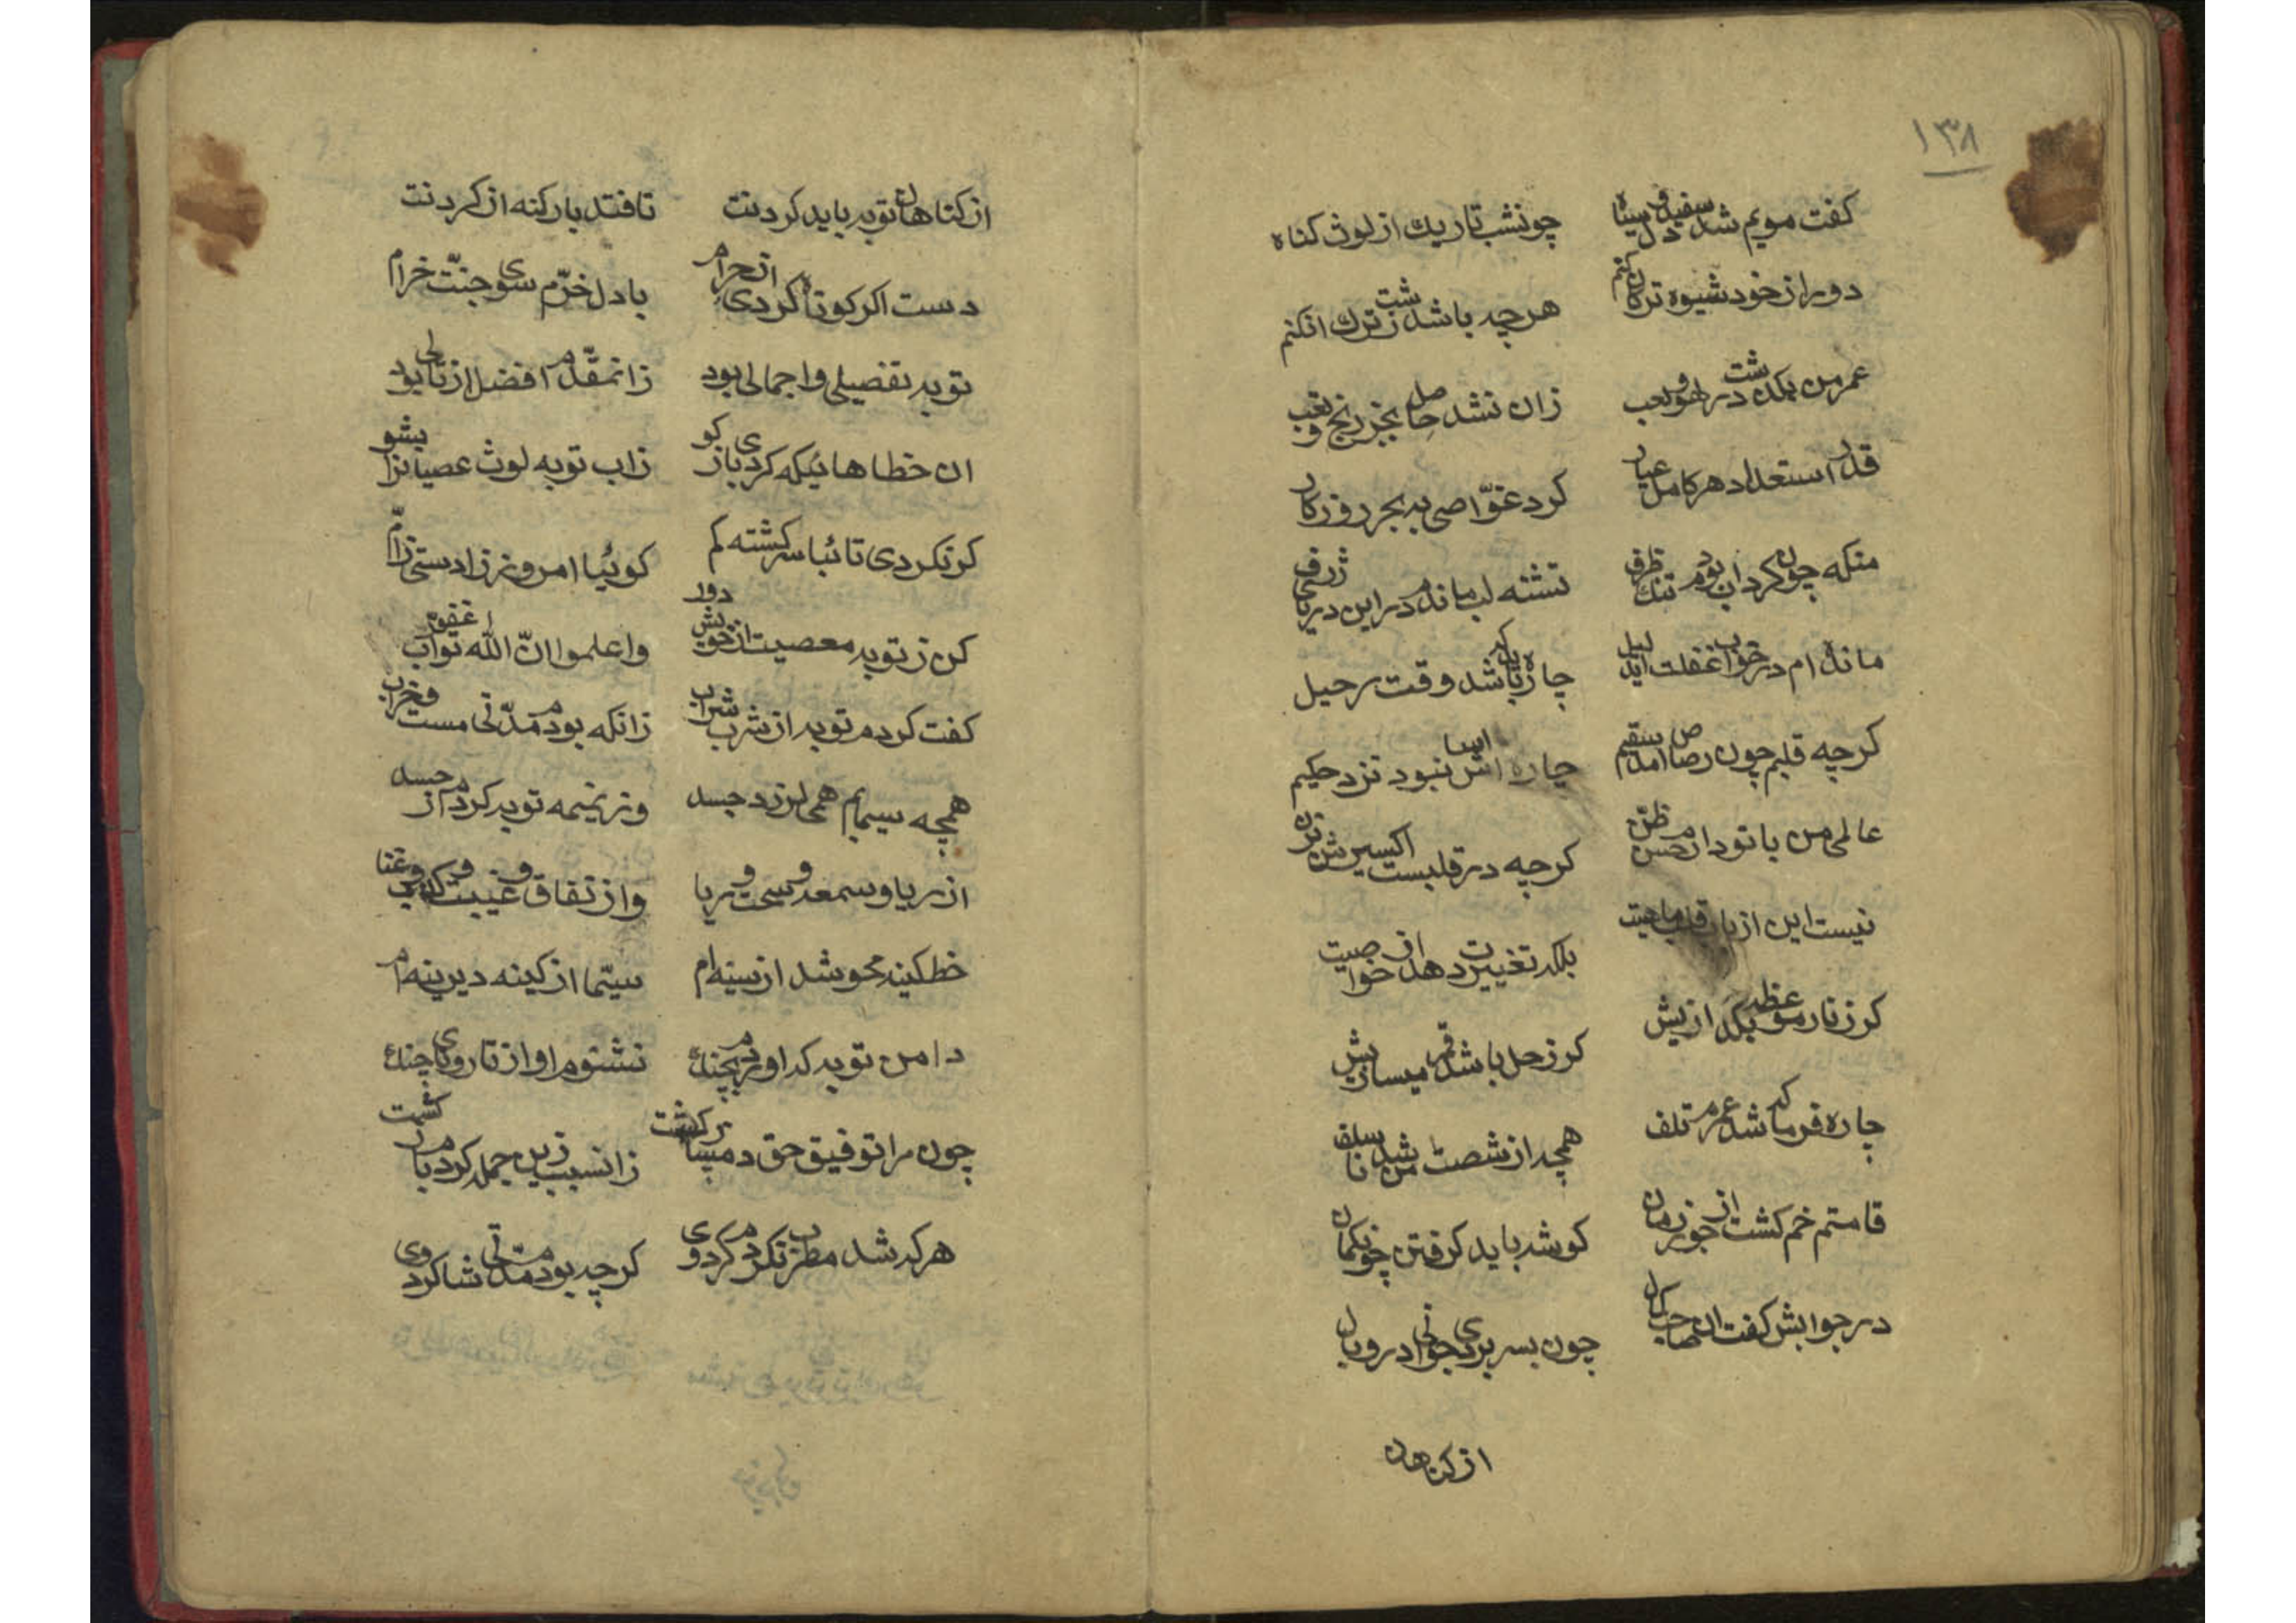 ١٣٨
کفت مویم شد سفید و دل سیاه چونشب تاریك از لوث کناه
دور از خود شیوه ترکان کنم هر چه باشد زشت ترك ان کنم
عمر من بکذشت در لهو و لعب زان نشد حاصل بجز رنج و تعب
قدر استعداد هر کامل عیار کرد غوّاصی به بحر روزکار
منکه چون کرداب بودم تنك ظرف تشنه لب ماندم در این دریای ژرف
مانده ام در خواب غفلت لیل چاره باید کرد شد وقت رحیل
کرچه قلبم چون رصاص امد سقیم چاره اش اسا نبود نزد حکیم
عالمی من با تو دارم حسن ظن کرچه در قلبست اکسیرش
نیست این از باب قلب ماهیت بلکه تغییرت دهد از خواصیت
کر ز نار موعظه بکدازیش کر زحل باشد قمر میسازیش
چاره فرما که شد عمرم تلف همچه از نشصت من شد ناسلف
قامتم خم کشت از جور زمان کوشه باید کرفتن چون کمان
در جوابش کفت ان صاحب کمال چون بسر بردی جوانی در وبال
از کناهان
از کناهان توبه باید کردنت تا فتد بار کنه از کردنت
دست اکر کوتاه کردی از حرام با دل خرّم سوی جنّت خرام
توبه تفصیلی و اجمالی بود زانمقدّم افضل از تالی بود
ان خطاها ئیکه کردی باز کو زاب توبه لوث عصیانرا بشو
کر نکردی تائبا سر کشته کم کوئیا امروز زادستی زام
کن ز توبه معصیت از خویش دور واعلموا انّ الله توّاب غفور
کفت کردم توبه از شرب شراب زانکه بودم مدّتی مست و خراب
همچه سیمابم همی لرزد جسد وز نمیمه توبه کردم از حسد
از ریا و سمعه و سحت و ربا وز نفاق و غیبت و کذب و غنا
خط کینه محو شد از سینه ام سیّما از کینه دیرینه ام
دامن توبه کر او فتدم بچنك نشنوم اواز تار و نای و چنك
چون مرا توفیق حق دمساز کشت زانسبب زین جمله کردم باز کشت
هر که شد مطرب نکردم کرد وی کرچه بودم مدّتی شاکرد وی